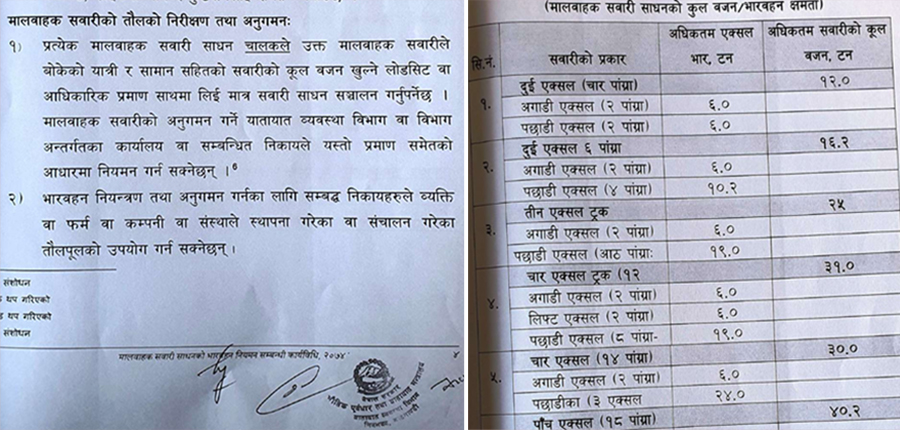 मालवाहक सवारीको तौलको निरीक्षण तथा अनुगमनः
१) प्रत्येक मालवाहक सवारी साधन चालकले उक्त मालवाहक सवारीले
बोकेको यात्री र सामान सहितको सवारीको कूल वजन खुल्ने लोडसिट वा
आधिकारिक प्रमाण साथमा लिई मात्र सवारी साधन सञ्चालन गर्नुपर्नेछ ।
मालवाहक सवारीको अनुगमन गर्ने यातायात व्यवस्था विभाग वा विभाग
अन्तर्गतका कार्यालय वा सम्बन्धित निकायले यस्तो प्रमाण समेतको
आधारमा नियमन गर्न सक्नेछन् ।⁶
२) भारवहन नियन्त्रण तथा अनुगमन गर्नका लागि सम्बद्ध निकायहरुले व्यक्ति
वा फर्म वा कम्पनी वा संस्थाले स्थापना गरेका वा संचालन गरेका
तौलपूलको उपयोग गर्न सक्नेछन् ।
संशोधन
थप गरिएको
थप गरिएको
संशोधन
मालवाहक सवारी साधनको भारवहन नियमन सम्बन्धी कार्यविधि, २०७४ ४
नेपाल सरकार
(मालवाहक सवारी साधनको कुल वजन/भारवहन क्षमता)
सि.नं. सवारीको प्रकार अधिकतम एक्सल भार, टन अधिकतम सवारीको कूल वजन, टन
१. दुई एक्सल (चार पांग्रा) १२.०
अगाडी एक्सल (२ पांग्रा) ६.०
पछाडी एक्सल (२ पांग्रा) ६.०
२. दुई एक्सल ६ पांग्रा १६.२
अगाडी एक्सल (२ पांग्रा) ६.०
पछाडी एक्सल (४ पांग्रा) १०.२
३. तीन एक्सल ट्रक २५
अगाडी एक्सल (२ पांग्रा) ६.०
पछाडी एक्सल (आठ पांग्राः १९.०
४. चार एक्सल ट्रक (१२ ३१.०
अगाडी एक्सल (२ पांग्रा) ६.०
लिफ्ट एक्सल (२ पांग्रा) ६.०
पछाडी एक्सल (८ पांग्रा- १९.०
५. चार एक्सल (१४ पांग्रा) ३०.०
अगाडी एक्सल (२ पांग्रा) ६.०
पछाडीका (३ एक्सल २४.०
पाँच एक्सल (१८ पांग्रा) ४०.२